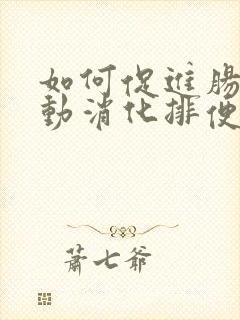 如何促進腸
動消化排便
蕭七爺